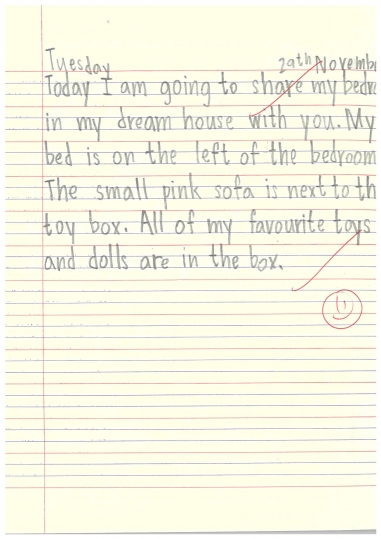 Tuesday 29th Novembe
Today I am going to share my bedr
in my dream house with you. My
bed is on the left of the bedroom
The small pink sofa is next to th
toy box. All of my favourite toys
and dolls are in the box.